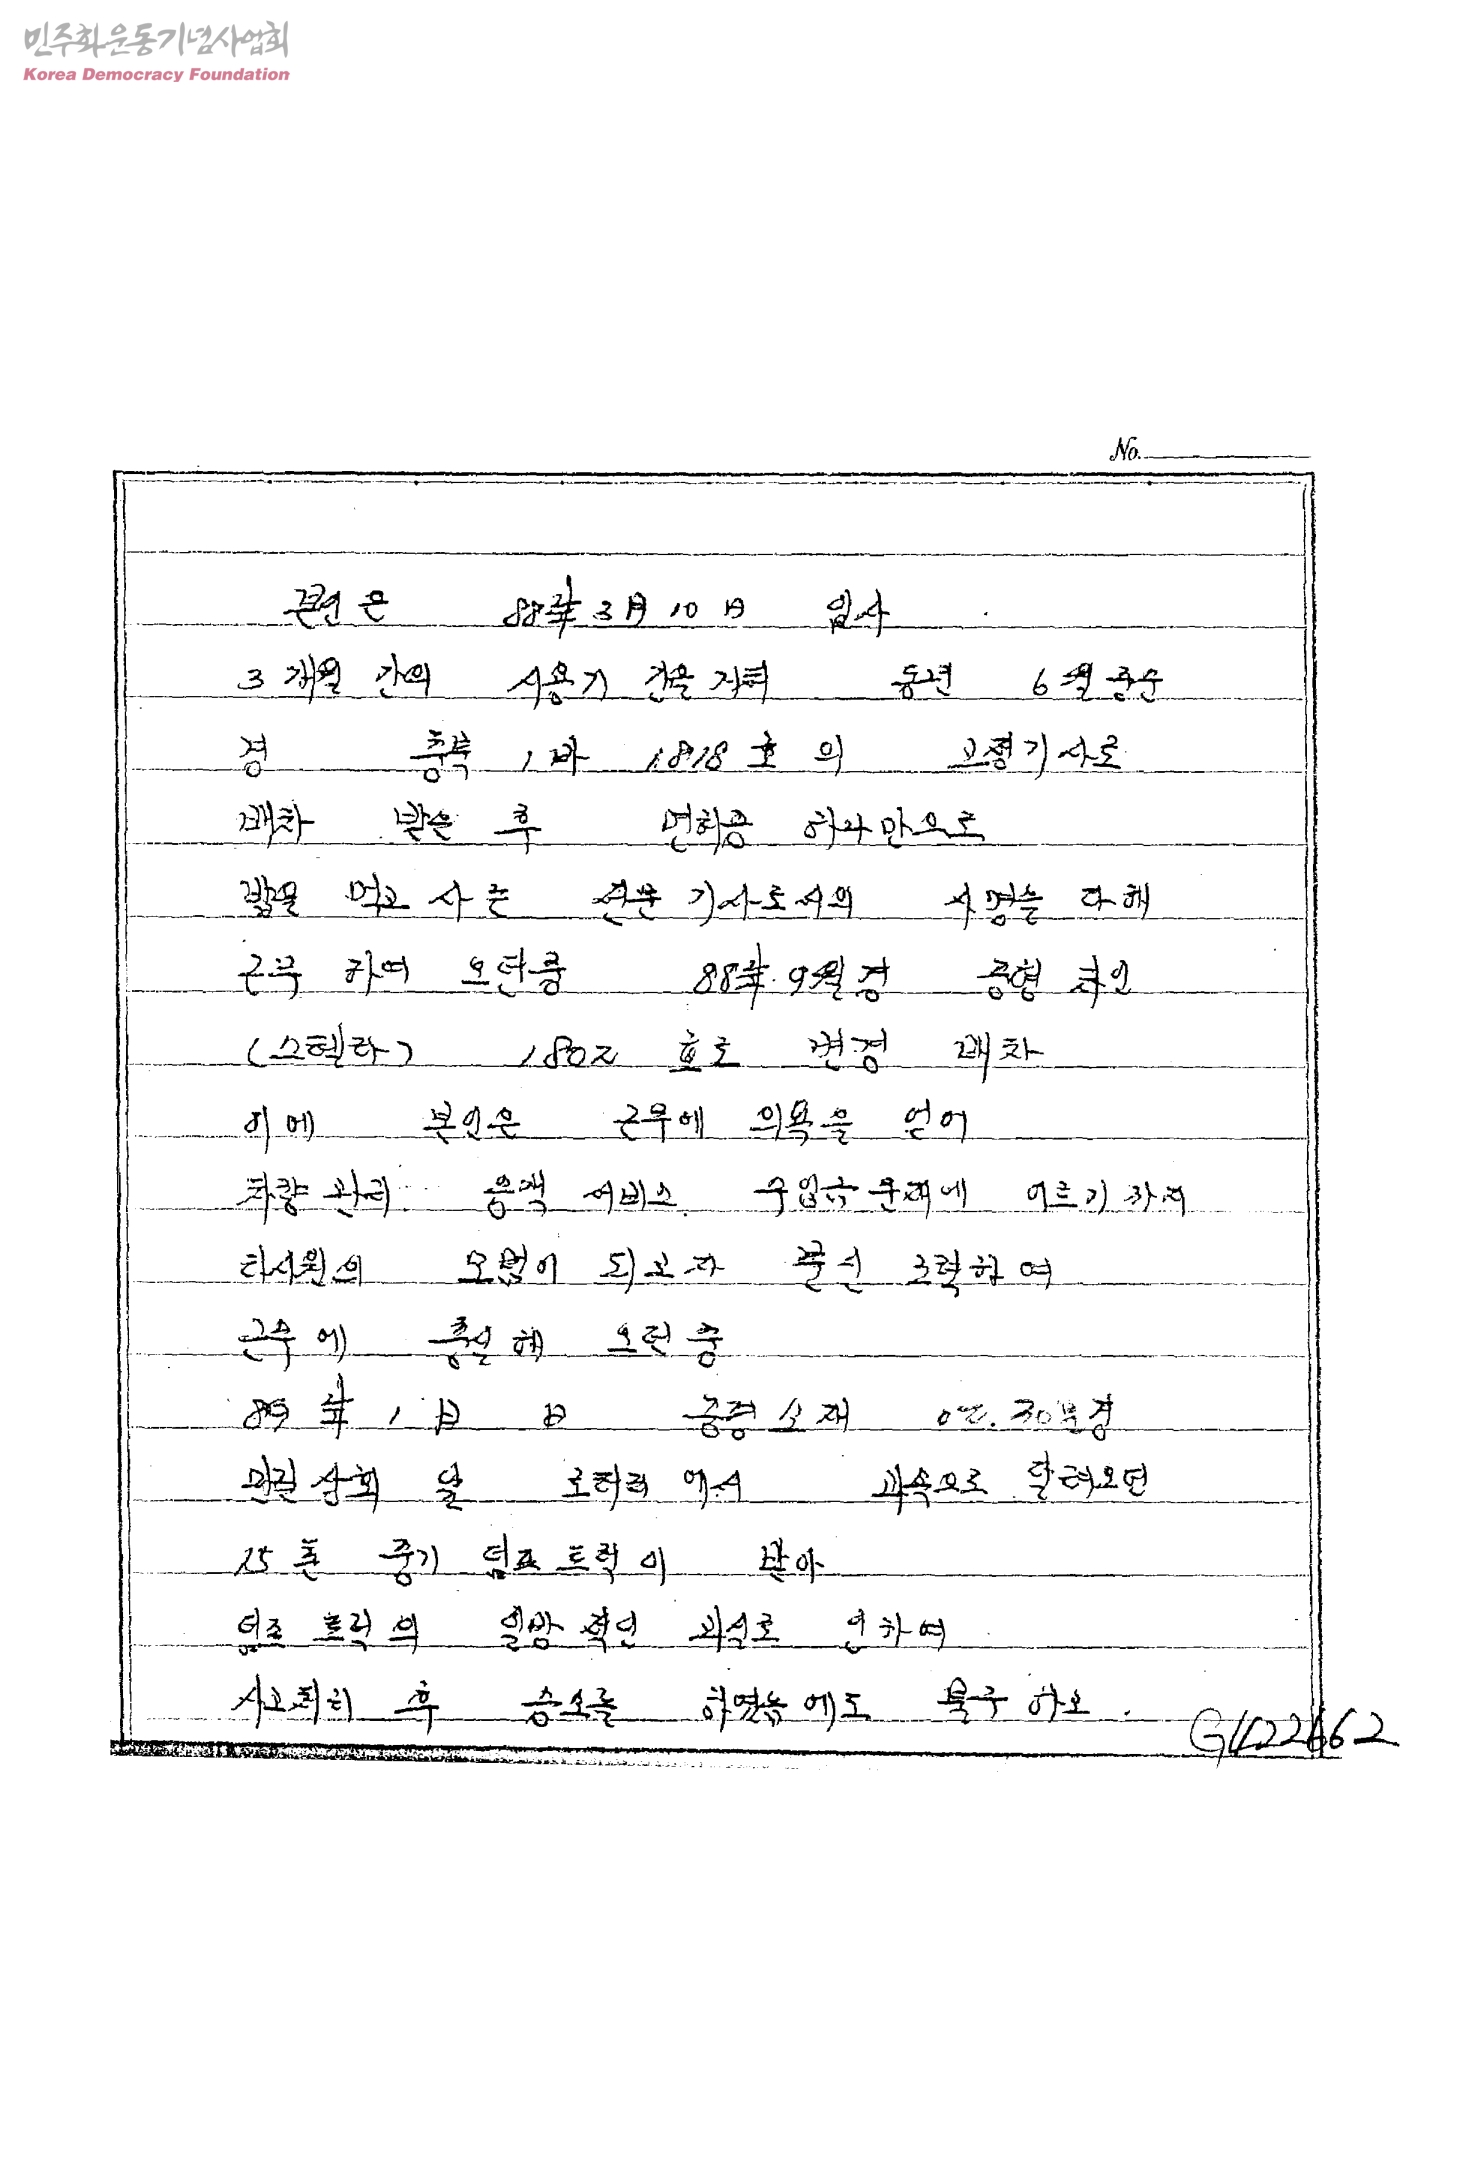 민주화운동기념사업회
Korea Democracy Foundation
No.
본인은 88年 3月 10日 입사
3개월 간의 시용기간을 거쳐 동년 6월 중순
경 충북 1바 1818호의 고정기사로
배차 받은 후 면허증 하나만으로
밥을 먹고 사는 전문 기사로서의 사명을 다해
근무 하여 오던중 88年 9월경 중형 차인
(스텔라) 1802호로 변경 배차
이에 본인은 근무에 의욕을 얻어
차량관리 승객 서비스 수입금 문제에 이르기 까지
타사원의 모범이 되고자 노력하여
근무에 충실해 오던 중
89年 1月 日 증평 소재 02.30분경
상회 앞 로타리에서 과속으로 달려오던
15톤 중기 덤프트럭이 받아
덤프 트럭의 일방적인 과실로 인하여
사고처리 후 승소를 하였음에도 불구하고.
G1422662